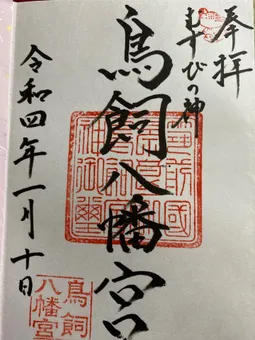 奉拝
むすびの神
鳥飼八幡宮
令和四年一月十日
鳥飼
八幡宮